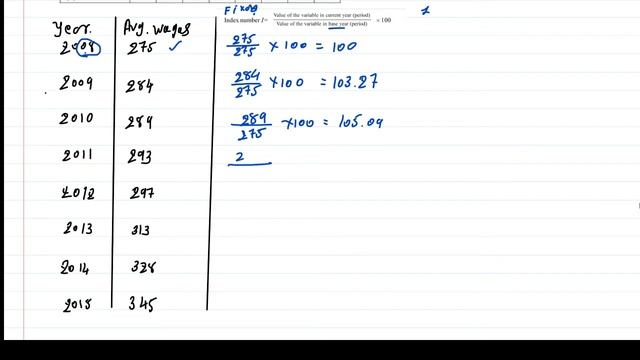 Fixed
Index number I = Value of the variable in current year (period) / Value of the variable in base year (period) × 100
Year. Avg. wages
2008 275 ✓ 275/275 × 100 = 100
2009 284 284/275 × 100 = 103.27
2010 289 289/275 × 100 = 105.09
2011 293 2
2012 297
2013 313
2014 328
2015 345